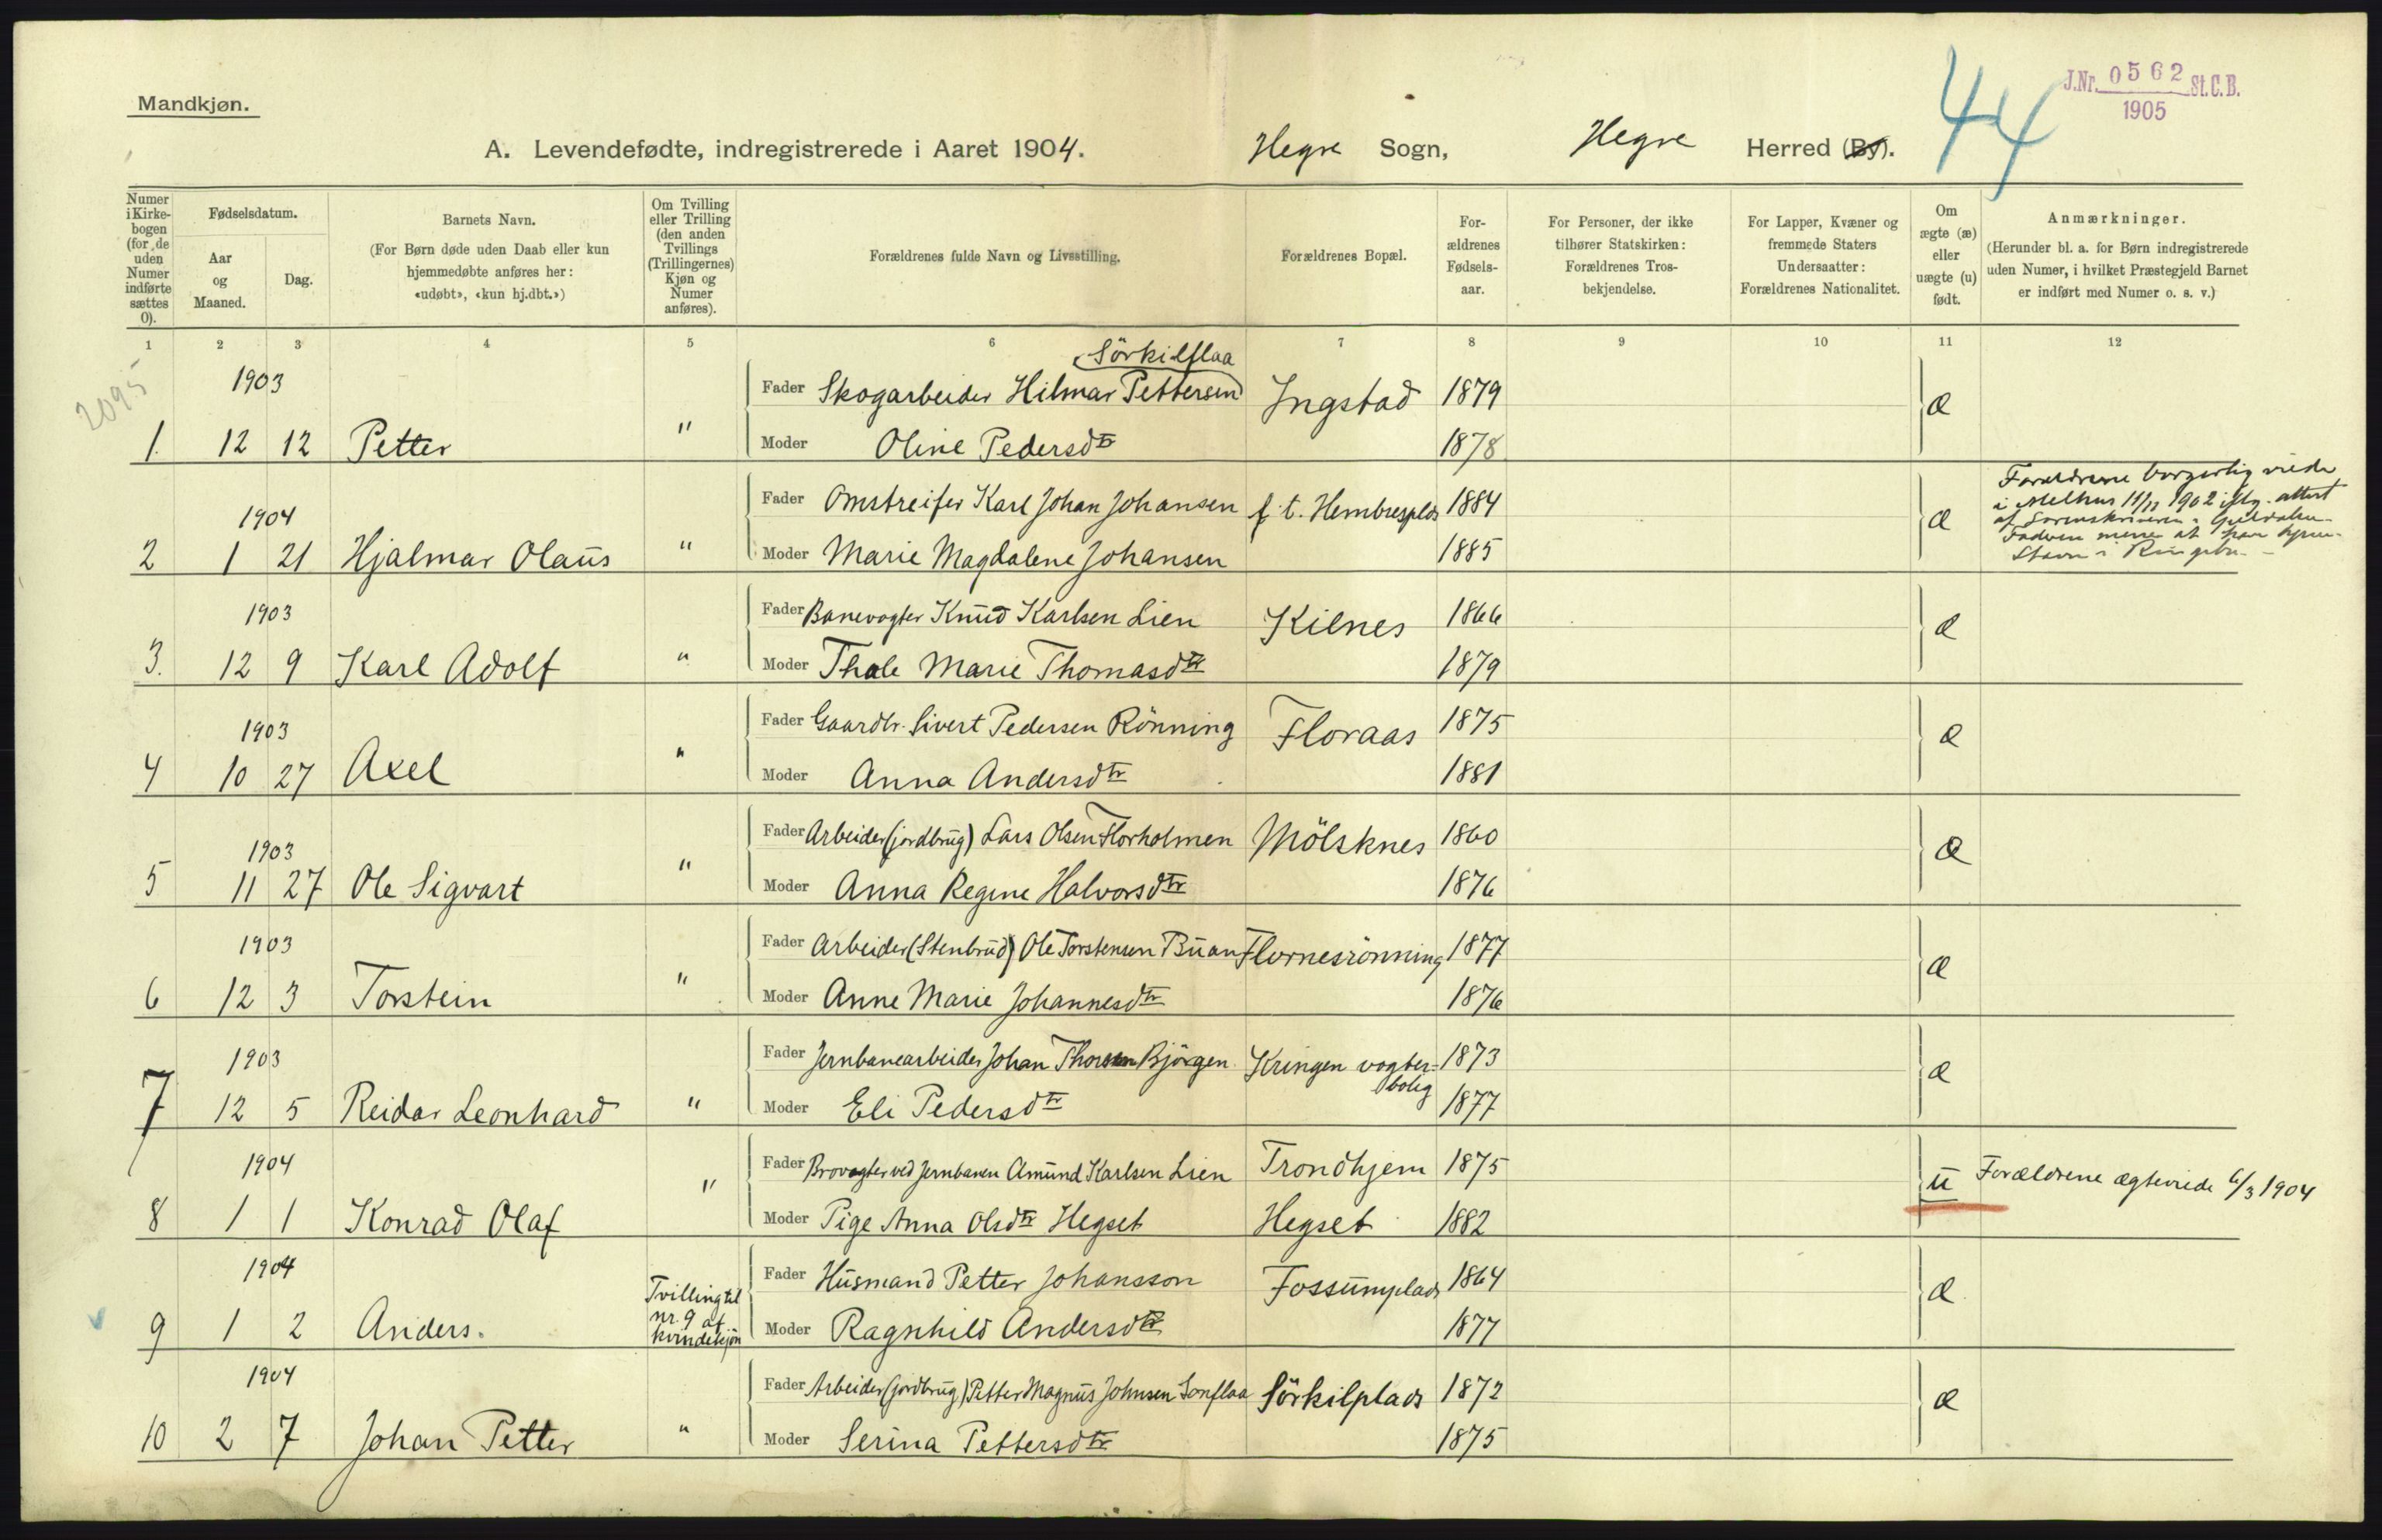 Mandkjøn.
J.Nr. 0562 St.C.B.
1905
44
A. Levendefødte, indregistrerede i Aaret 1904. Hegre Sogn, Hegre Herred (By).
Numer i Kirkebogen (for de uden Numer indførte sættes 0).
Fødselsdatum.
Aar og Maaned.
Dag.
Barnets Navn.
(For Børn døde uden Daab eller kun
hjemmedøbte anføres her:
«udøbt», «kun hj.dbt.»)
Om Tvilling
eller Trilling
(den anden
Tvillings
(Trillingernes)
Kjøn og
Numer
anføres).
Forældrenes fulde Navn og Livsstilling.
Forældrenes Bopæl.
For-
ældrenes
Fødsels-
aar.
For Personer, der ikke
tilhører Statskirken:
Forældrenes Tros-
bekjendelse.
For Lapper, Kvæner og
fremmede Staters
Undersaatter:
Forældrenes Nationalitet.
Om
ægte (æ)
eller
uægte (u)
født.
Anmærkninger.
(Herunder bl. a. for Børn indregistrerede
uden Numer, i hvilket Præstegjeld Barnet
er indført med Numer o. s. v.)
1 2 3 4 5 6 7 8 9 10 11 12
2095
Sörkilflaa
1903 Fader Skogarbeider Hilmar Pettersen Ingstad 1879 æ
1. 12 12 Petter " Moder Oline Pedersdtr 1878
1904 Fader Omstreifer Karl Johan Johansen f. t. Hembresplds 1884 æ
2 1 21 Hjalmar Olaus " Moder Marie Magdalene Johansen 1885
Forældrene borgerlig viede
i Melhus 11/12 1902 iflg. attest
af Sorenskriveren i Guldalen
Faderen mener at have hjem-
stavn i Ringebu
1903 Fader Banevogter Knud Karlsen Lien Kilnes 1866 æ
3. 12 9 Karl Adolf " Moder Thale Marie Thomasdtr 1879
1903 Fader Gaardbr. Sivert Pedersen Rönning Floraas 1875 æ
4 10 27 Axel " Moder Anna Andersdtr 1881
1903 Fader Arbeider (jordbrug) Lars Olsen Florholmen Mölsknes 1860 æ
5 11 27 Ole Sigvart " Moder Anna Regine Halvorsdtr 1876
1903 Fader Arbeider (Stenbrud) Ole Torstensen Buan Flornesrönning 1877 æ
6 12 3 Torstein " Moder Anne Marie Johannesdtr 1876
1903 Fader Jernbanearbeider Johan Thorsen Björgen Kringen vogter- 1873 æ
bolig
7 12 5 Reidar Leonhard " Moder Eli Pedersdtr 1877
1904 Fader Brovogter ved Jernbanen Amund Karlsen Lien Trondhjem 1875 u Forældrene ægteviede 6/3 1904
8 1 1 Konrad Olaf " Moder Pige Anna Olsdtr Hegset Hegset 1882
1904 Fader Husmand Petter Johansson Fossumplads 1864 æ
9 1 2 Anders. Tvilling til
nr. 9 af
kvindekjön
Moder Ragnhild Andersdtr 1877
1904 Fader Arbeider (jordbrug) Petter Magnus Johnsen Sonflaa Sörkilplads 1872 æ
10 2 7 Johan Petter " Moder Serina Pettersdtr 1875